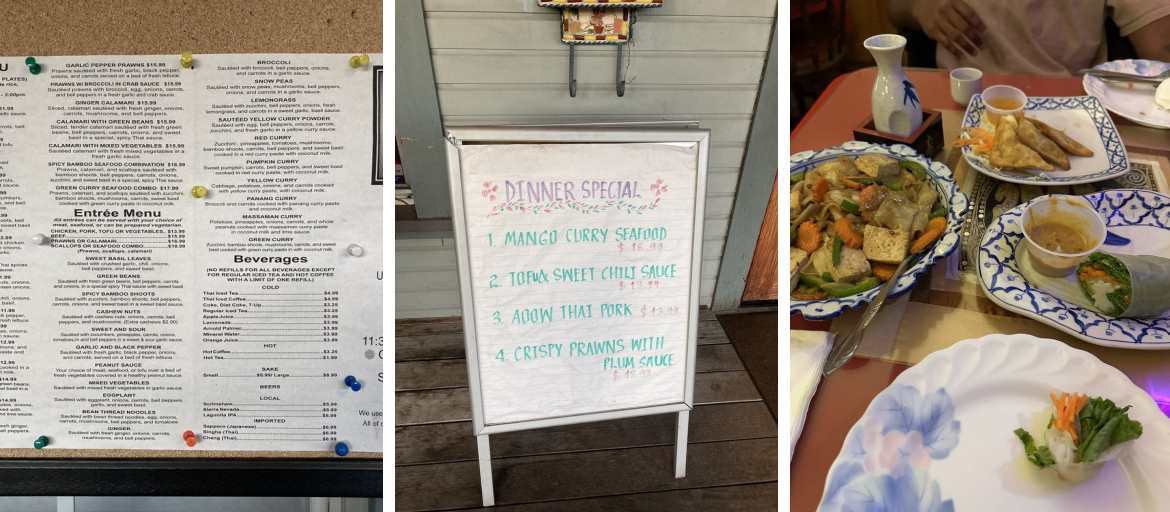 GARLIC PEPPER PRAWNS $15.99
Prawns sautéed with fresh garlic, black pepper,
onions, and carrots served on a bed of fresh lettuce
PRAWNS W/ BROCCOLI IN CRAB SAUCE $15.99
Sautéed prawns with broccoli, egg, onions, carrots,
and bell peppers in a fresh garlic and crab sauce.
GINGER CALAMARI $15.99
Sliced, calamari sautéed with fresh ginger, onions,
carrots, mushrooms, and bell peppers.
CALAMARI WITH GREEN BEANS $15.99
Sliced, tender calamari sautéed with fresh green
beans, bell peppers, carrots, onions, and sweet
basil in a special, spicy Thai sauce.
CALAMARI WITH MIXED VEGETABLES $15.99
Calamari sautéed with fresh mixed vegetables in a
fresh garlic sauce.
SPICY BAMBOO SEAFOOD COMBINATION $16.99
Prawns, calamari, and scallops sautéed with
bamboo shoots, bell peppers, carrots, onions,
zucchini and sweet basil in a special, spicy sauce.
GREEN CURRY SEAFOOD COMBO $17.99
Prawns, calamari, and scallops sautéed with zucchini,
bamboo shoots, bell peppers, carrots, and sweet basil
cooked in green curry paste in coconut milk.
Entrée Menu
All entrées can be served with your choice of
meat, seafood, or can be prepared vegetarian.
CHICKEN, PORK, TOFU OR VEGETABLES.. $13.99
BEEF $15.99
PRAWNS OR CALAMARI $16.99
CALI OR SEAFOOD COMBO $19.99
(Prawns, scallops, calamari)
SWEET BASIL LEAVES
Sautéed with crushed garlic, chili, onions,
bell peppers, and sweet basil.
GREEN BEANS
Sautéed with fresh green beans, bell peppers, carrots,
and onions in a special spicy Thai sauce with sweet basil.
SPICY BAMBOO SHOOTS
Sautéed with zucchini, bamboo shoots, bell peppers,
carrots, onions, and sweet basil in a sweet basil sauce.
CASHEW NUTS
Sautéed with cashew nuts, onions, carrots, bell
peppers, and mushrooms. (Extra cashews $2.00)
SWEET AND SOUR
Sautéed with cucumbers, pineapples, carrots, onions,
tomatoes, and bell peppers in a sweet & sour garlic sauce
GARLIC AND BLACK PEPPER
Sautéed with fresh garlic, black pepper, onions,
and carrots, served on a bed of fresh lettuce.
PEANUT SAUCE
Your choice of meat, seafood, or tofu over a bed of
fresh vegetables covered in a healthy peanut sauce.
MIXED VEGETABLES
Sautéed with mixed fresh vegetables in garlic sauce.
EGGPLANT
Sautéed with eggplant, onions, carrots, bell peppers,
garlic, and sweet basil.
BEAN THREAD NOODLES
Sautéed with bean thread noodles, egg, onions,
carrots, mushrooms, bell peppers, and tomatoes.
GINGER
Sautéed with fresh ginger, onions, carrots,
mushrooms, and bell peppers.
BROCCOLI
Sautéed with broccoli, bell peppers, onions,
and carrots in a garlic sauce.
SNOW PEAS
Sautéed with snow peas, mushrooms, bell peppers,
onions, and carrots in a garlic sauce.
LEMONGRASS
Sautéed with zucchini, bell peppers, onions, fresh
lemongrass, and carrots in a sweet garlic, basil sauce.
SAUTÉED YELLOW CURRY POWDER
Sautéed with egg, bell peppers, onions, carrots,
zucchini, and fresh garlic in a yellow curry sauce.
RED CURRY
Zucchini, pineapples, tomatoes, mushrooms,
bamboo shoots, carrots, bell peppers, and sweet basil
cooked in a red curry paste with coconut milk.
PUMPKIN CURRY
Sweet pumpkin, carrots, bell peppers, and sweet basil
cooked in red curry paste, with coconut milk.
YELLOW CURRY
Cabbage, potatoes, onions, and carrots cooked
with yellow curry paste with coconut milk.
PANANG CURRY
Broccoli and carrots cooked with panang curry paste
with coconut milk.
MASSAMAN CURRY
Potatoes, pineapples, onions, carrots, and whole
peanuts cooked with massaman curry paste
with coconut milk.
GREEN CURRY
Zucchini, bamboo shoots, carrots, and sweet
basil cooked in green curry paste in coconut milk
and lime sauce.
Beverages
(NO REFILLS FOR ALL BEVERAGES EXCEPT
FOR REGULAR ICED TEA AND HOT COFFEE
WITH A LIMIT OF ONE REFILL)
COLD
Thai Iced Tea $4.99
Thai Iced Coffee $4.99
Coke, Diet Coke, 7-Up $3.25
Regular Iced Tea $3.25
Apple Juice $3.99
Lemonade $3.99
Arnold Palmer $3.99
Mineral Water $3.99
Orange Juice $3.99
HOT
Hot Coffee $3.25
Hot Tea $1.99
SAKE
Small $5.99/ Large $8.99
BEERS
LOCAL
Scrimshaw $5.99
Sierra Nevada $5.99
Lagunita IPA $5.99
IMPORTED
Sapporo (Japanese) $6.99
Singha (Thai) $6.99
Chang (Thai) $6.99
DINNER SPECIAL
1. MANGO CURRY SEAFOOD
$ 18.99
2. TOFU & SWEET CHILI SAUCE
$ 13.99
3. ADOW THAI PORK $ 13.99
4. CRISPY PRAWNS WITH
PLUM SAUCE